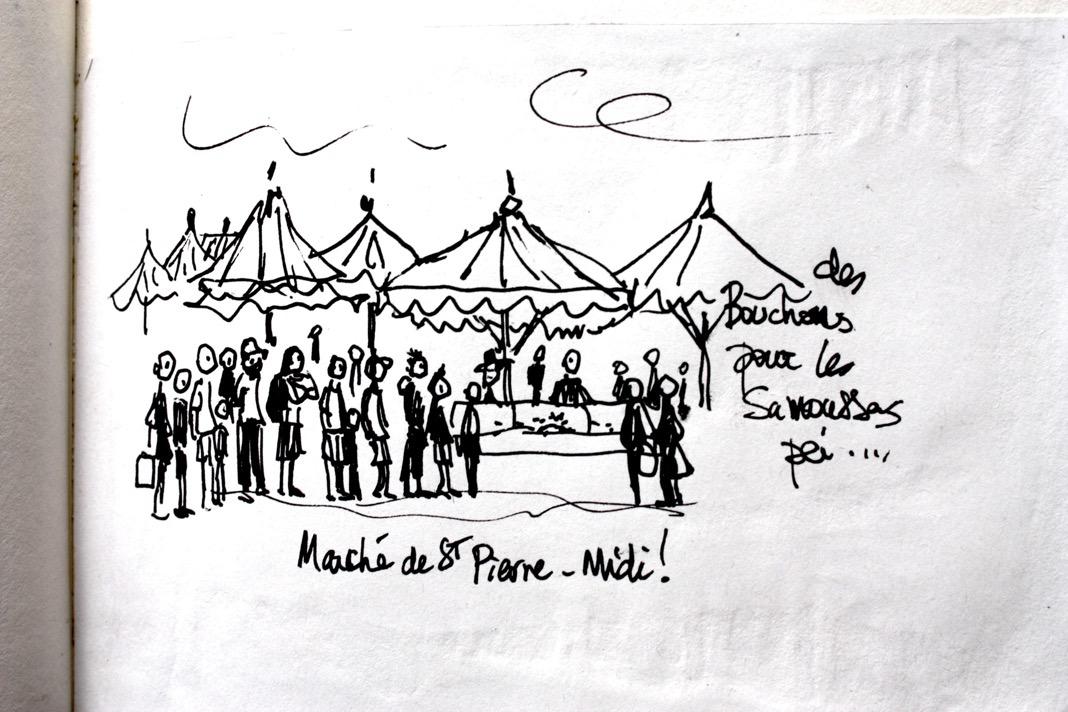 des
Bouchons
pour les
Samoussas
péi ....
Marché de St Pierre - Midi !